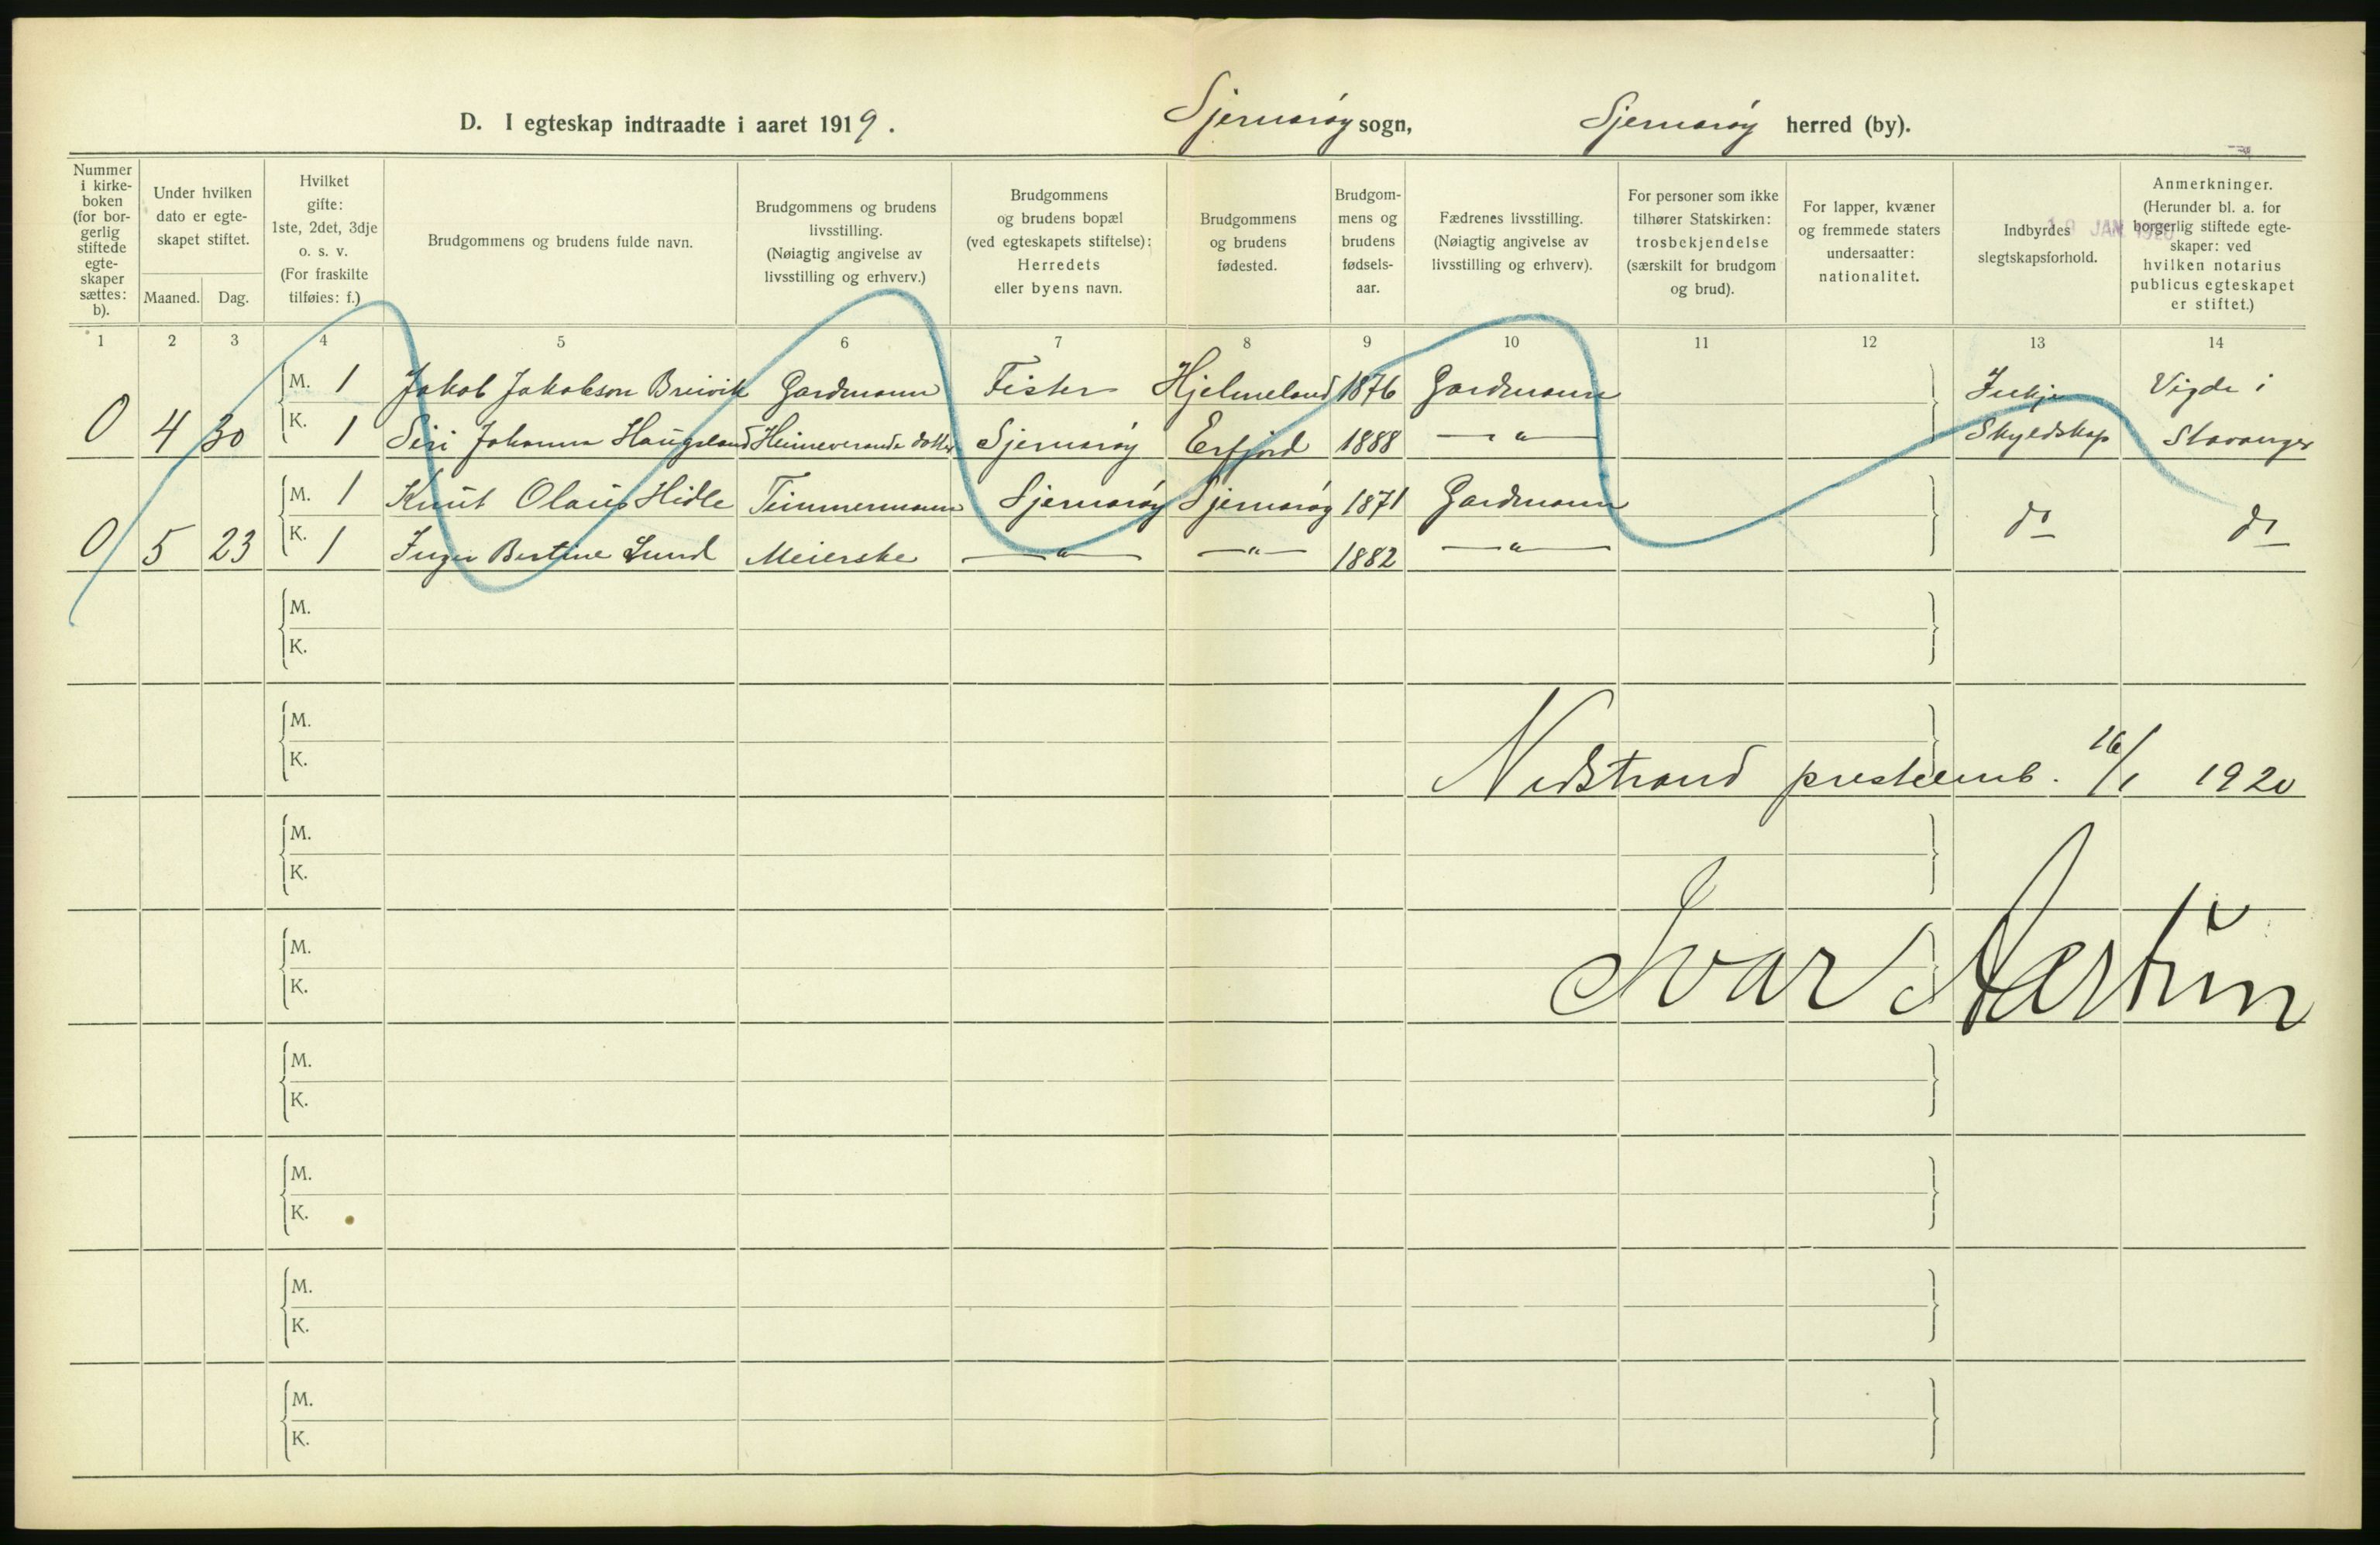 D. I egteskap indtraadte i aaret 1919. Sjernarøy sogn, Sjernarøy herred (by).
Nummer i kirkeboken (for borgerlig stiftede egteskaper sættes: b).
Under hvilken dato er egteskapet stiftet.
Maaned. Dag.
Hvilket gifte: 1ste, 2det, 3dje o. s. v. (For fraskilte tilføies: f.)
Brudgommens og brudens fulde navn.
Brudgommens og brudens livsstilling. (Nøiagtig angivelse av livsstilling og erhverv.)
Brudgommens og brudens bopæl (ved egteskapets stiftelse): Herredets eller byens navn.
Brudgommens og brudens fødested.
Brudgommens og brudens fødselsaar.
Fædrenes livsstilling. (Nøiagtig angivelse av livsstilling og erhverv).
For personer som ikke tilhører Statskirken: trosbekjendelse (særskilt for brudgom og brud).
For lapper, kvæner og fremmede staters undersaatter: nationalitet.
Indbyrdes slegtskapsforhold.
Anmerkninger. (Herunder bl. a. for borgerlig stiftede egteskaper: ved hvilken notarius publicus egteskapet er stiftet.)
JAN 1920
1 2 3 4 5 6 7 8 9 10 11 12 13 14
M. 1 Jakob Jakobson Breivik Gardmann Fister Hjelmeland 1876 Gardmann Inkje Vigde i
0 4 30 K. 1 Siri Johanna Haugsland Heimeverande dotter Sjernarøy Erfjord 1888 —"— Skyldskap Stavanger
M. 1 Knut Olaus Hidle Timmermann Sjernarøy Sjernarøy 1871 Gardmann do do
0 5 23 K. 1 Inger Bertine Lund Meierske —"— —"— 1882 —"—
M.
K.
M.
K.
Nedstrand prestemb. 16/1 1920
M.
K.
M.
K.
Ivar Nærtun
M.
K.
M.
K.
M.
K.
M.
K.